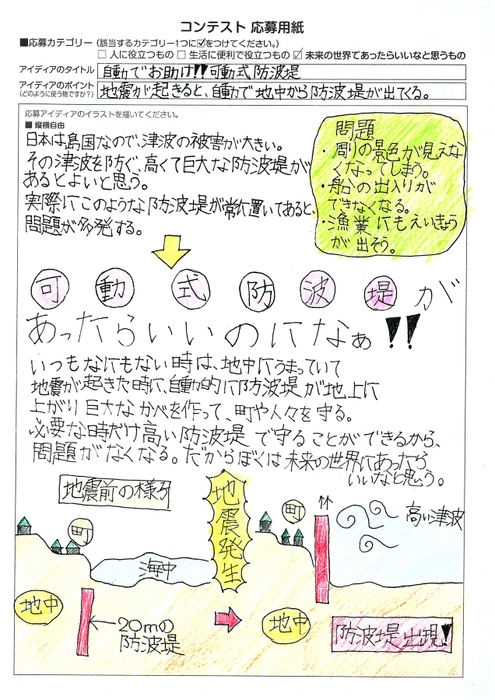 コンテスト 応募用紙
■応募カテゴリー（該当するカテゴリー1つに☑をつけてください。）
□ 人に役立つもの □ 生活に便利で役立つもの ☑ 未来の世界であったらいいなと思うもの
アイディアのタイトル 自動でお助け!!可動式防波堤
アイディアのポイント（どのように使う物ですか？） 地震が起きると、自動で地中から防波堤が出てくる。
応募アイディアのイラストを描いてください。
■ 縦横自由
日本は島国なので、津波の被害が大きい。
その津波を防ぐ、高くて巨大な防波堤が
あるとよいと思う。
実際にこのような防波堤が常に置いてあると、
問題が多発する。
問題
・周りの景色が見えな
くなってしまう。
・船の出入りが
できなくなる。
・漁業にもえいきょう
が出そう。
可動式防波堤が
あったらいいのになぁ!!
いつもなにもない時は、地中にうまっていて
地震が起きた時に、自動的に防波堤が地上に
上がり巨大なかべを作って、町や人々を守る。
必要な時だけ高い防波堤で守ることができるから、
問題がなくなる。だからぼくは未来の世界にあったら
いいなと思う。
地震前の様子
町
海中
地中
20mの
防波堤
地震発生
町
高い津波
地中
防波堤出現!